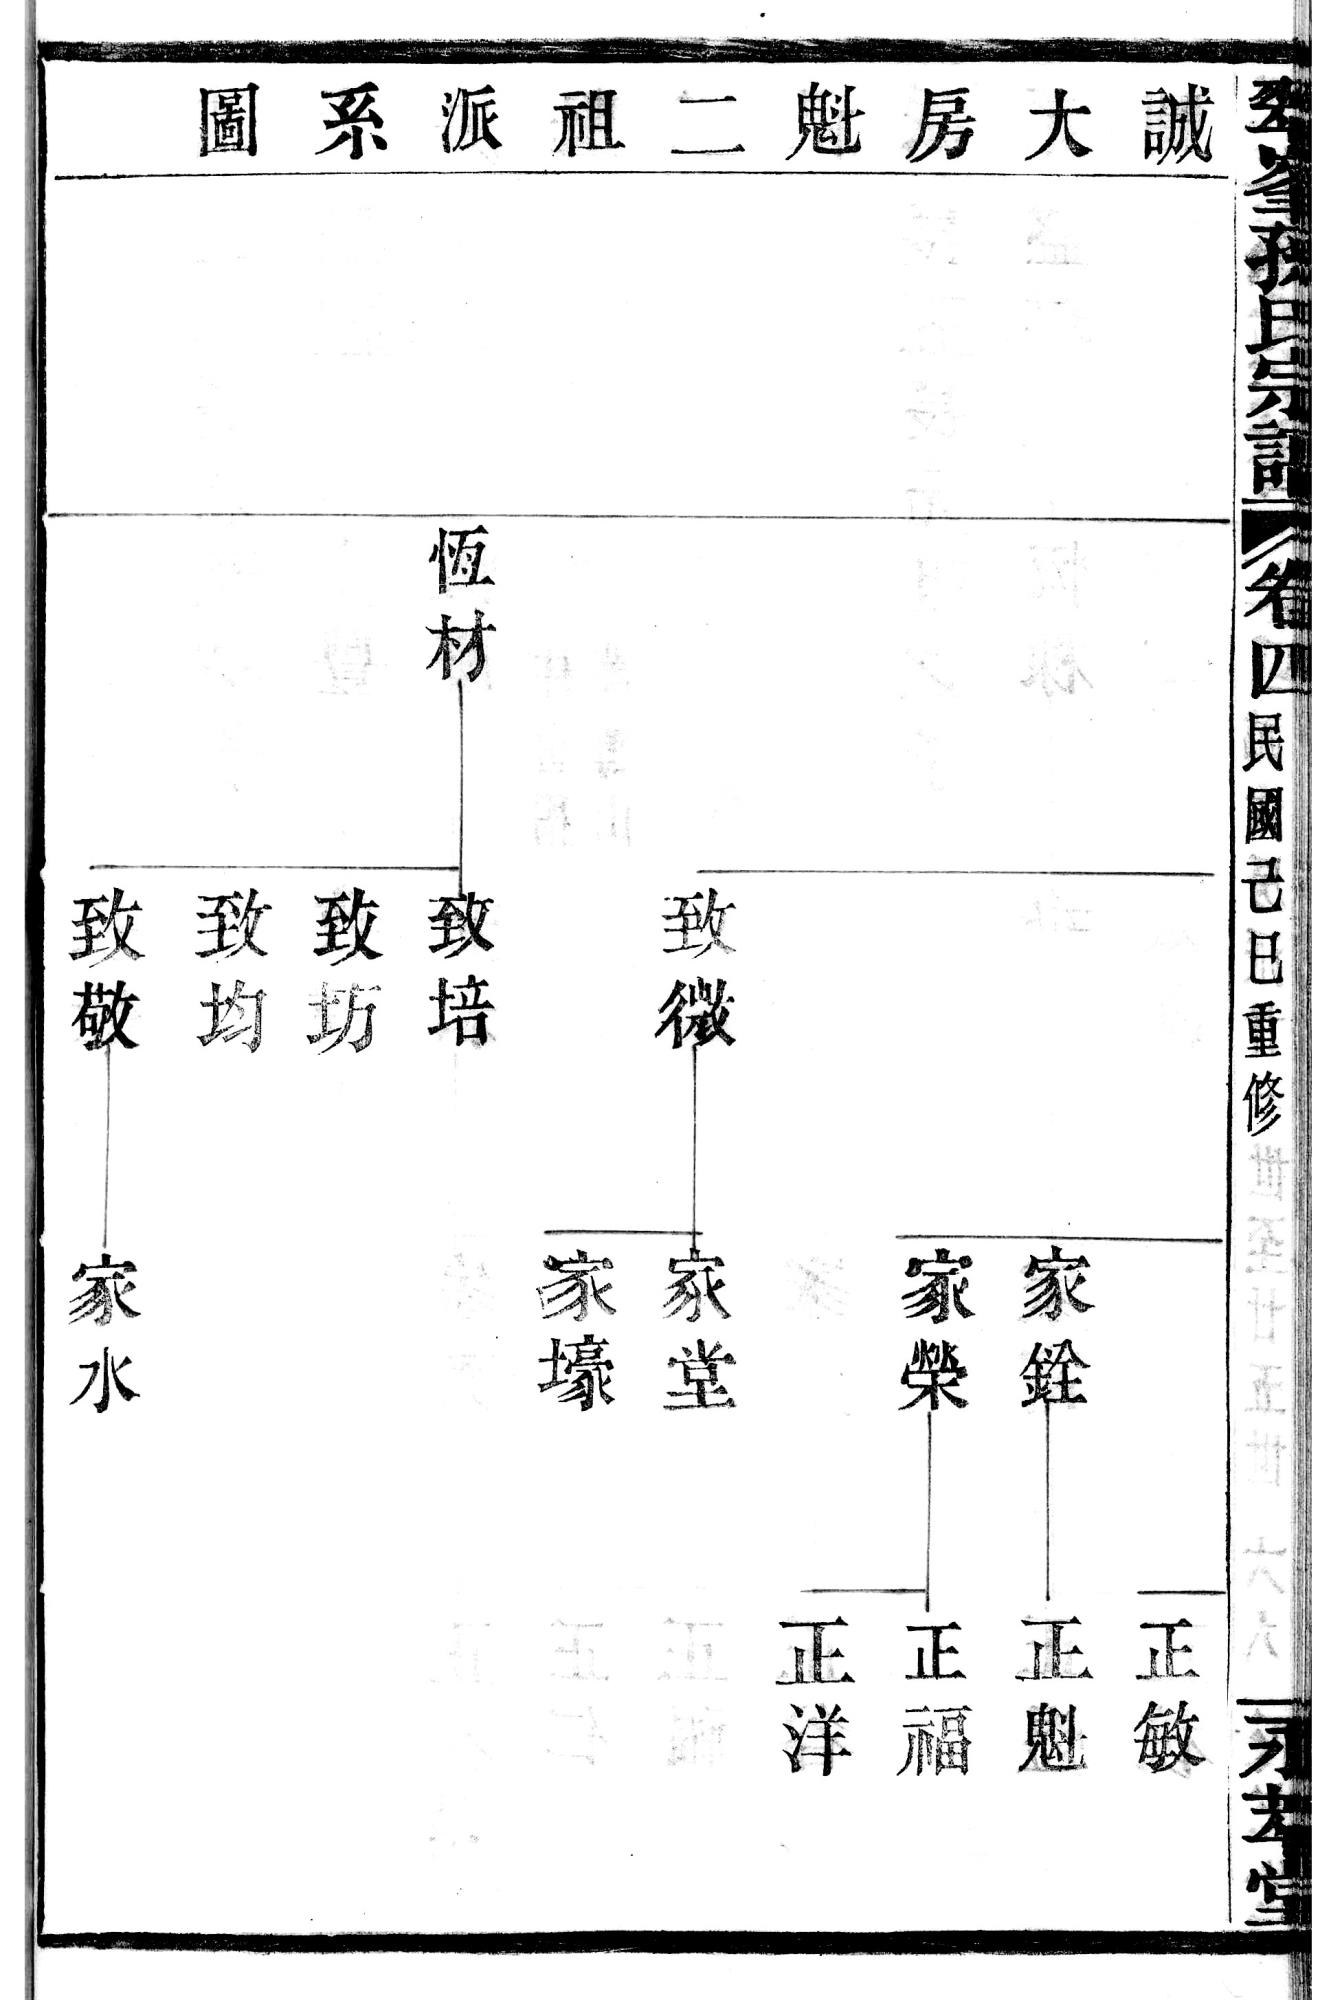 誠大房魁二祖派系圖
孫氏宗譜
卷四
民國己巳重修
堂
恆材
致微
致培
致坊
致均
致敬
家銓
家榮
家堂
家壕
家水
正敏
正魁
正福
正洋